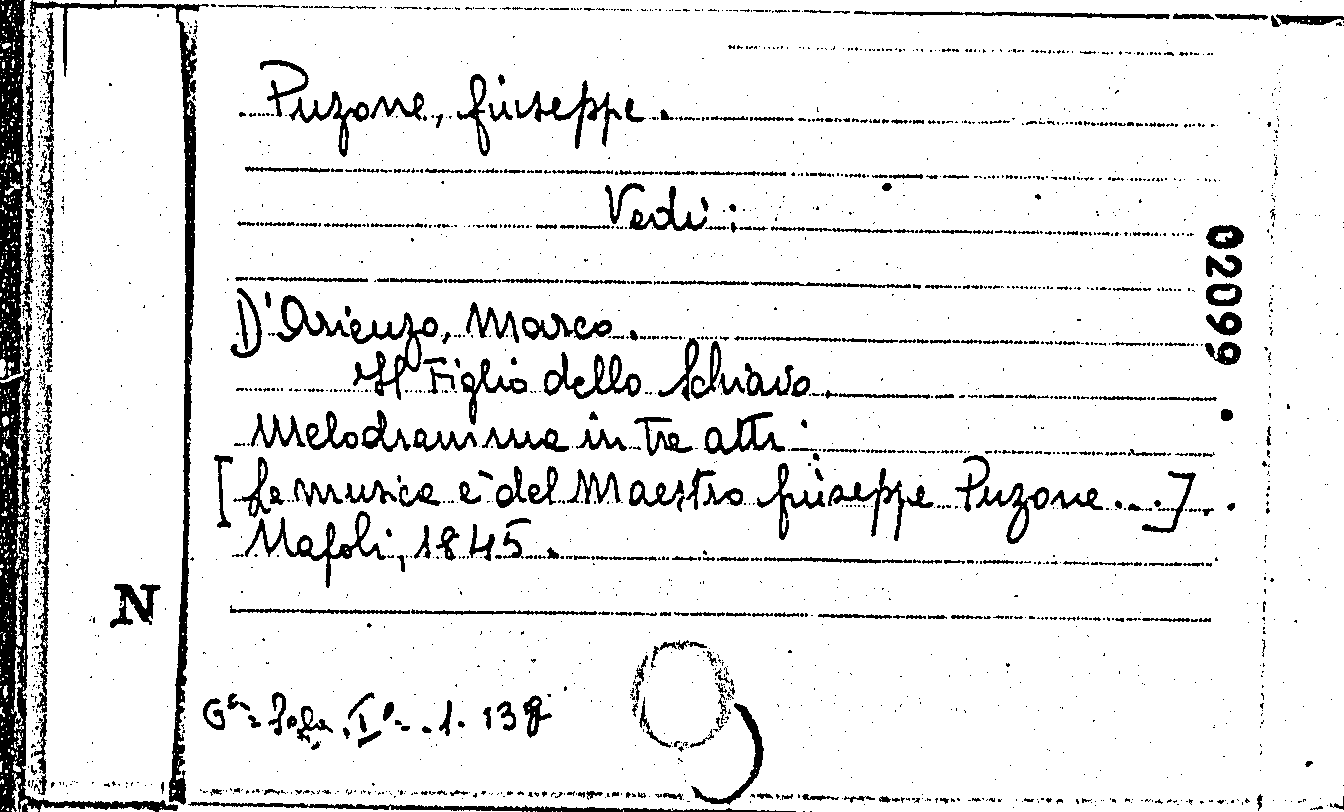 Puzone, Giuseppe.
Vedi:
02099
D'Arienzo, Marco.
Il Figlio dello Schiavo.
Melodramma in tre atti.
[La musica è del Maestro Giuseppe Puzone...].
Napoli, 1845.
N